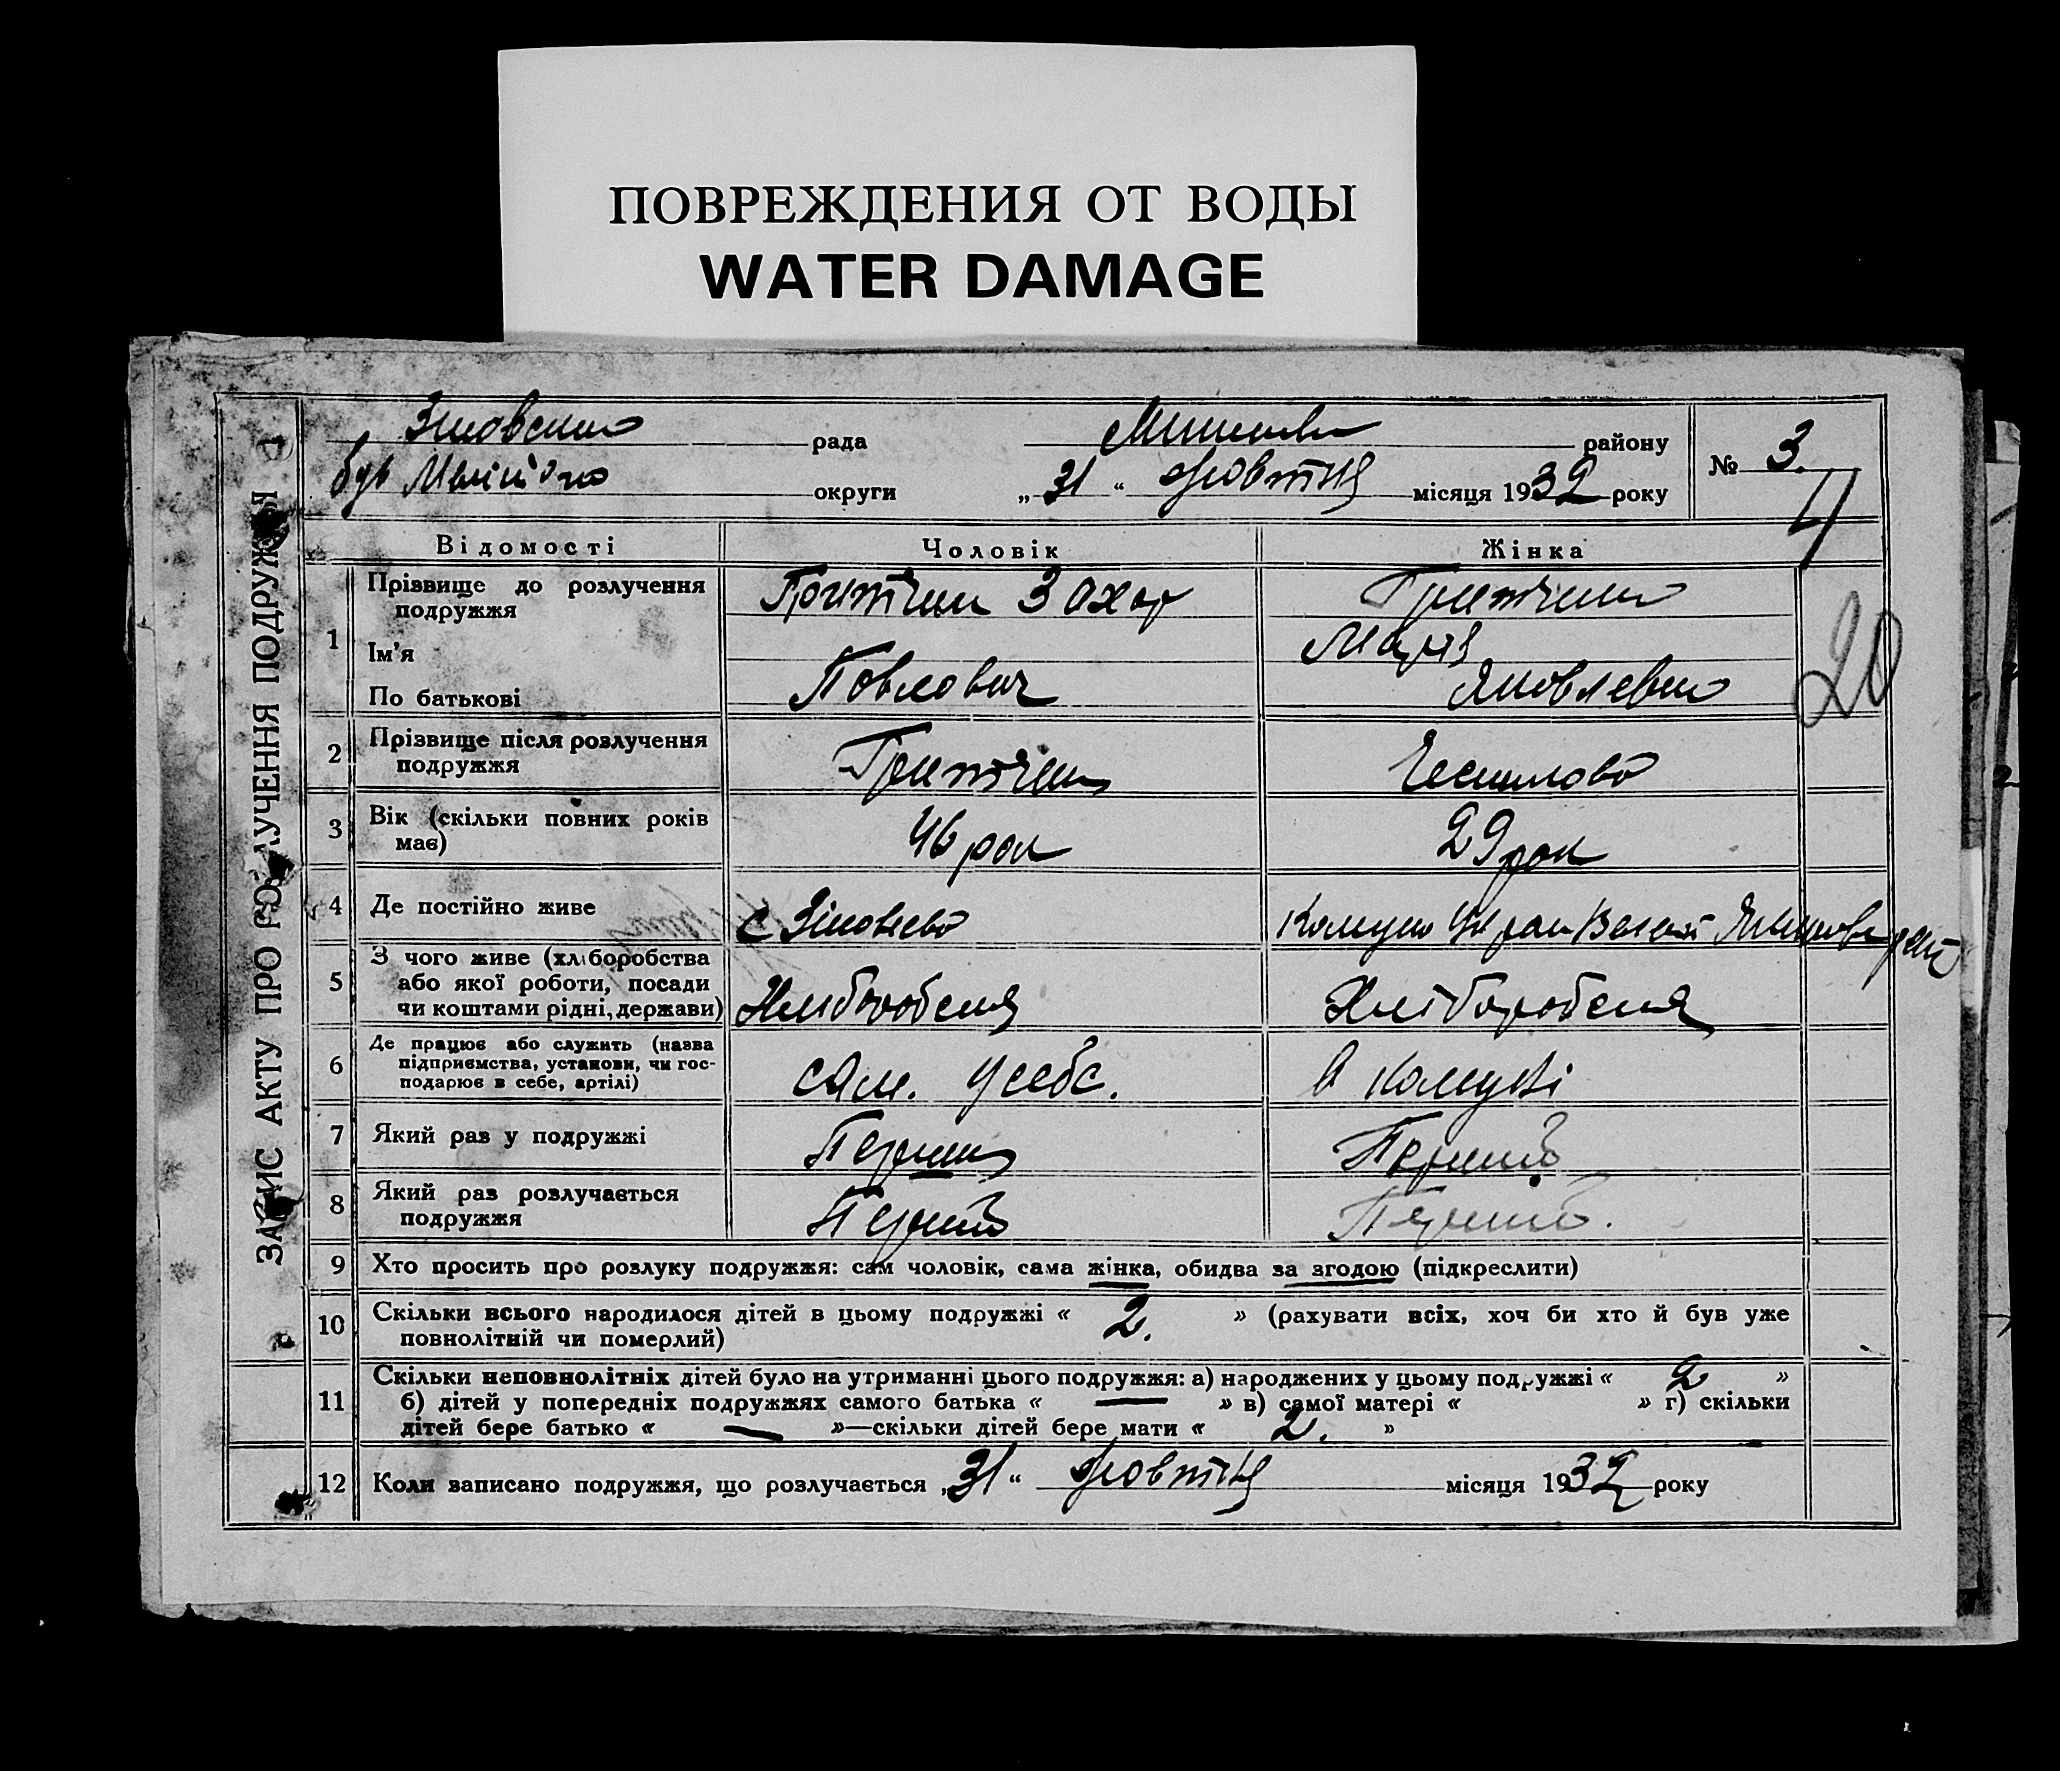 ПОВРЕЖДЕНИЯ ОТ ВОДЫ
WATER DAMAGE
ЗАПИС АКТУ ПРО РОЗЛУЧЕННЯ ПОДРУЖЖЯ
рада району
№ 3.
округи „ 31 “ жовтня місяця 1932 року
4
Відомості Чоловік Жінка
1 Прізвище до розлучення подружжя Захар
Ім'я Марія
По батькові Павлович Яковлевна
20
2 Прізвище після розлучення
подружжя
3 Вік (скільки повних років
має) 46 рок 29 рок
4 Де постійно живе с
5 З чого живе (хліборобства
або якої роботи, посади
чи коштами рідні, держави) Хліборобства Хліборобства
6 Де працює або служить (назва
підприємства, установи, чи гос-
подарює в себе, артілі) сам. у себе. в комуні
7 Який раз у подружжі Перший Перший
8 Який раз розлучається
подружжя Перший Перший.
9 Хто просить про розлуку подружжя: сам чоловік, сама жінка, обидва за згодою (підкреслити)
10 Скільки всього народилося дітей в цьому подружжі « 2. » (рахувати всіх, хоч би хто й був уже
повнолітній чи померлий)
11 Скільки неповнолітніх дітей було на утриманні цього подружжя: а) народжених у цьому подружжі « 2 »
б) дітей у попередніх подружжях самого батька « — » в) самої матері « » г) скільки
дітей бере батько « — »—скільки дітей бере мати « 2. »
12 Коли записано подружжя, що розлучається „ 31 “ жовтня місяця 1932 року